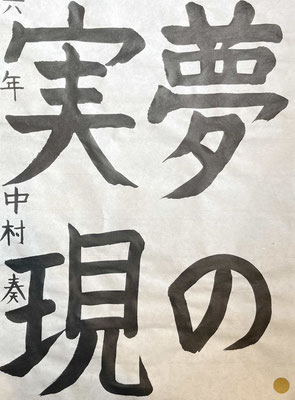 夢の
実現
六年 中村 奏